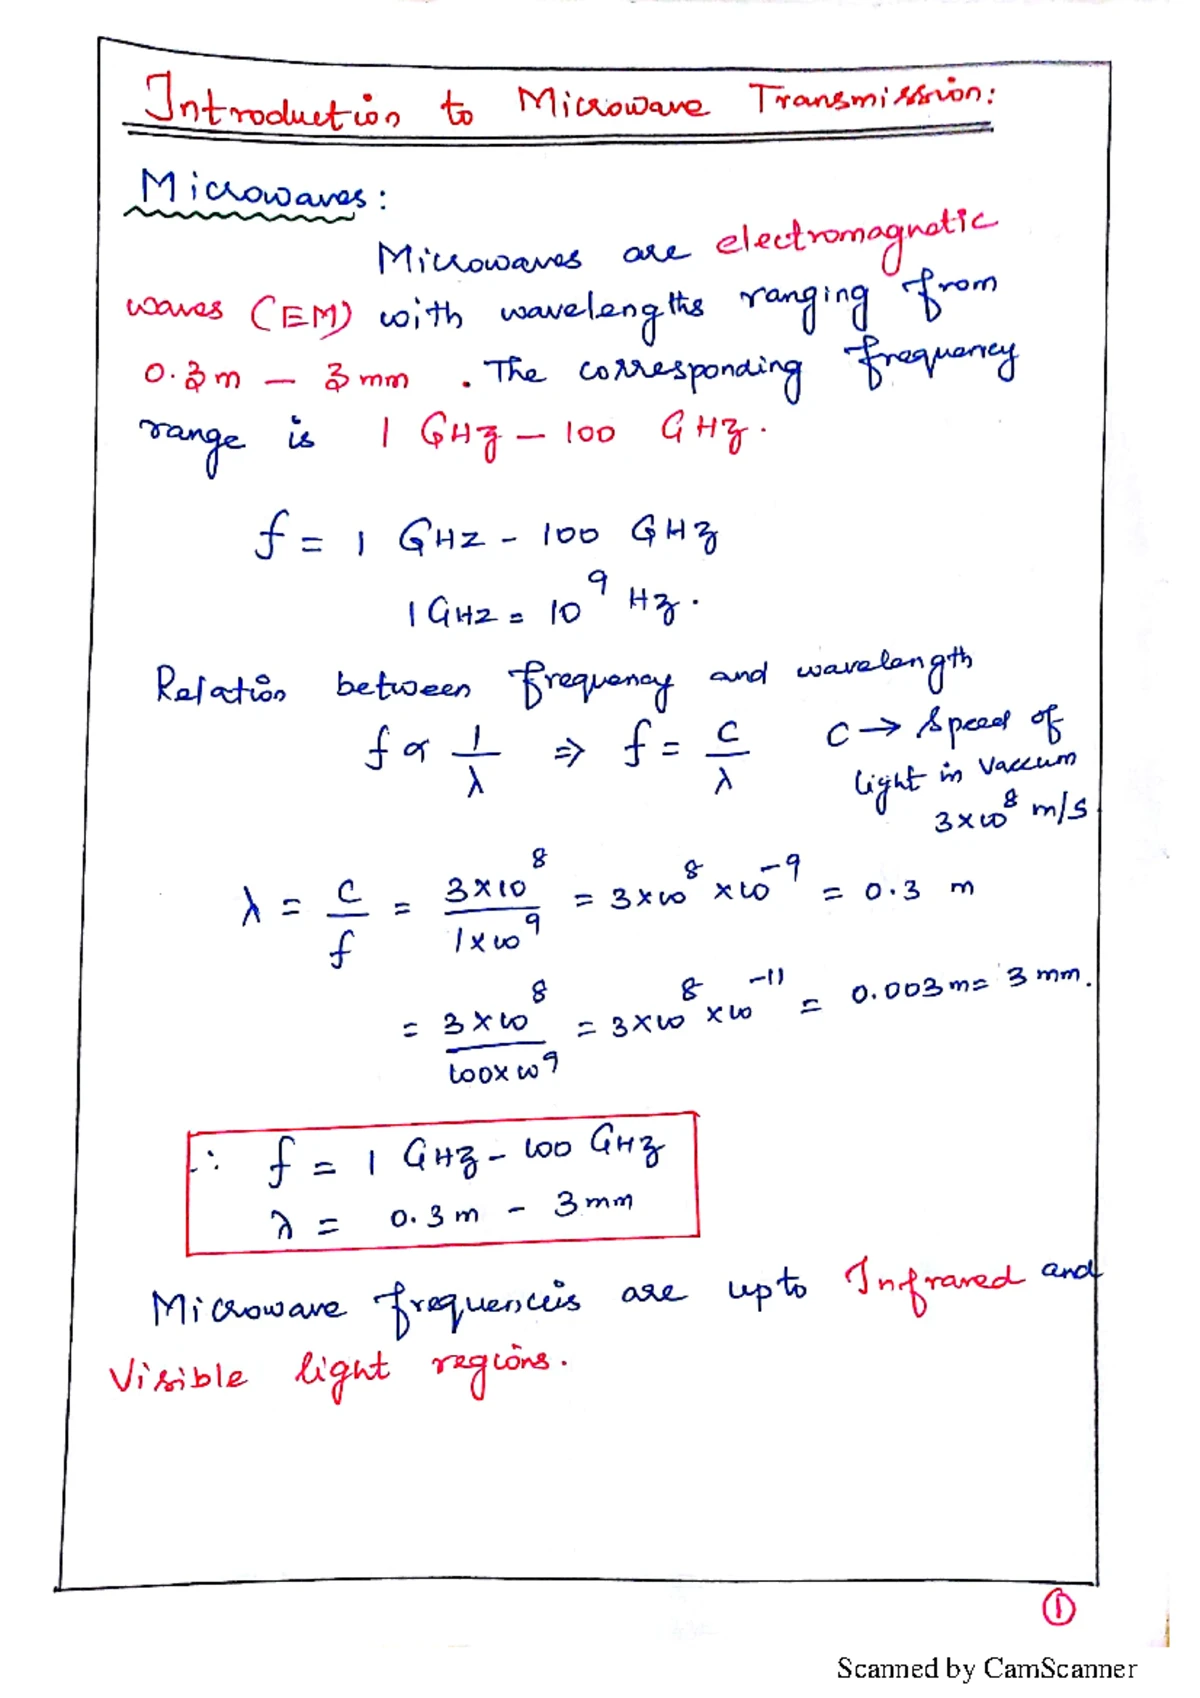 Introduction to Microwave Transmission:
Microwaves:
Microwaves are electromagnetic
waves (EM) with wavelengths ranging from
0.3m – 3mm . The corresponding frequency
range is 1 GHz – 100 GHz.
f = 1 GHz - 100 GHz
1 GHz = 10⁹ Hz.
Relation between frequency and wavelength
f ∝ 1/λ ⇒ f = C/λ C → Speed of
light in Vaccum
3×10⁸ m/s
λ = C/f = 3×10⁸/1×10⁹ = 3×10⁸ ×10⁻⁹ = 0.3 m
= 3×10⁸/100×10⁹ = 3×10⁸ ×10⁻¹¹ = 0.003m = 3mm.
∴ f = 1 GHz - 100 GHz
λ = 0.3m - 3mm
Microwave frequencies are upto Infrared and
Visible light regions.
1
Scanned by CamScanner